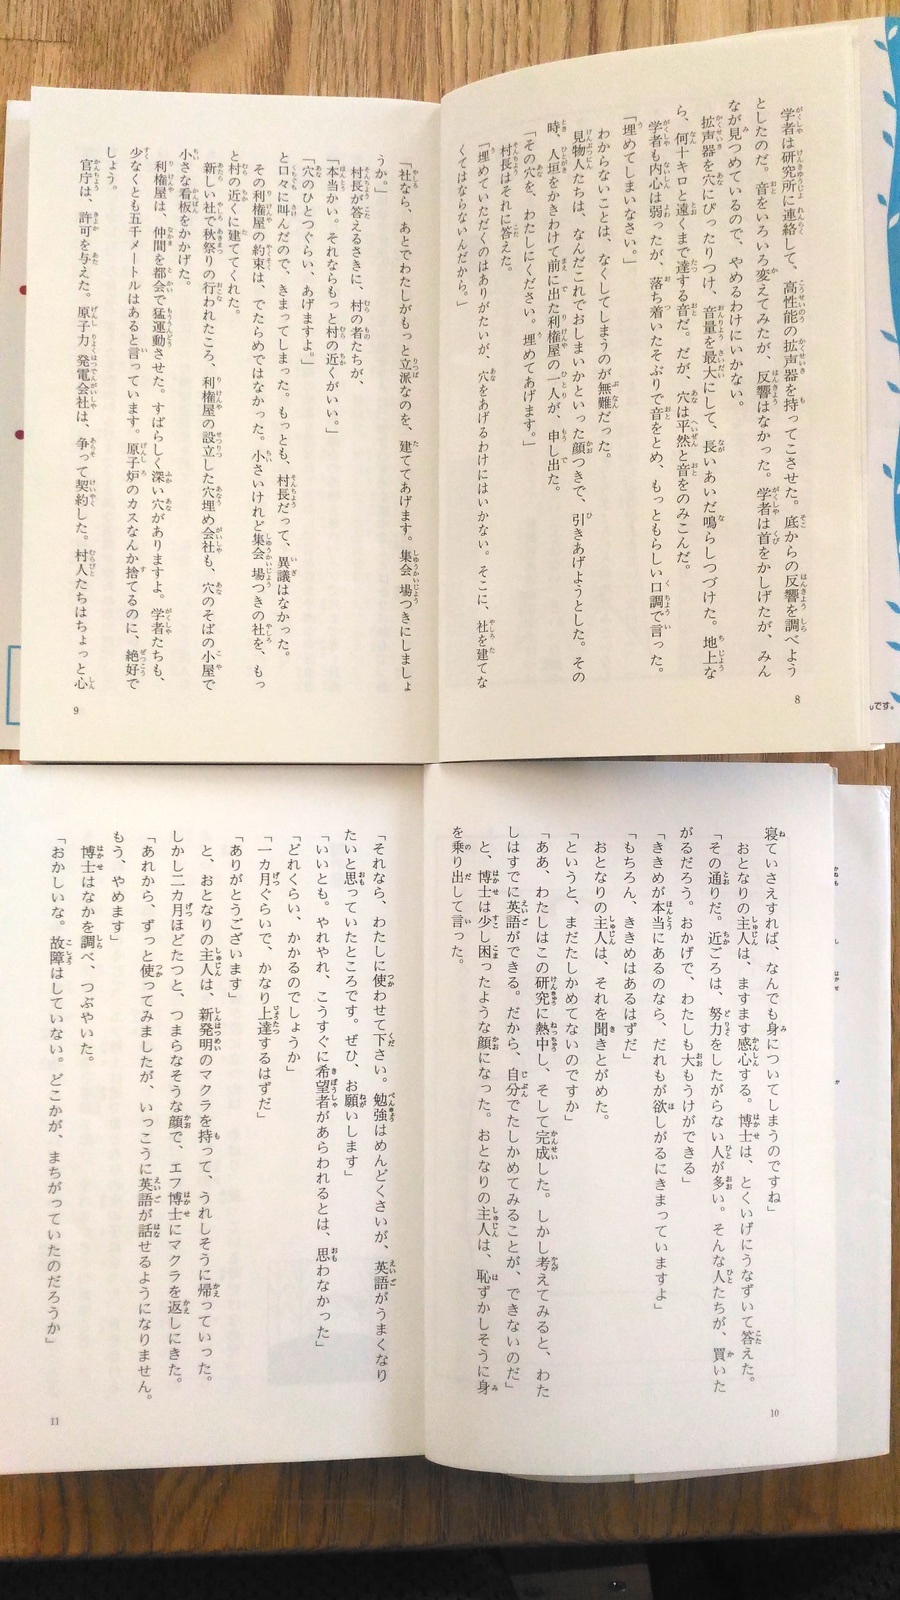 学者は研究所に連絡して、高性能の拡声器を持ってこさせた。底からの反響を調べよう
としたのだ。音をいろいろ変えてみたが、反響はなかった。学者は首をかしげたが、みん
なが見つめているので、やめるわけにいかない。
拡声器を穴にぴったりつけ、音量を最大にして、長いあいだ鳴らしつづけた。地上な
ら、何十キロと遠くまで達する音だ。だが、穴は平然と音をのみこんだ。
学者も内心は弱ったが、落ち着いたそぶりで音をとめ、もっともらしい口調で言った。
「埋めてしまいなさい。」
わからないことは、なくしてしまうのが無難だった。
見物人たちは、なんだこれでおしまいかといった顔つきで、引きあげようとした。その
時、人垣をかきわけて前に出た利権屋の一人が、申し出た。
「その穴を、わたしにください。埋めてあげます。」
村長はそれに答えた。
「埋めていただくのはありがたいが、穴をあげるわけにはいかない。そこに、社を建てな
くてはならないんだから。」
8
「社なら、あとでわたしがもっと立派なのを、建ててあげます。集会場つきにしましょ
うか。」
村長が答えるさきに、村の者たちが、
「本当かい。それならもっと村の近くがいい。」
「穴のひとつぐらい、あげますよ。」
と口々に叫んだので、きまってしまった。もっとも、村長だって、異議はなかった。
その利権屋の約束は、でたらめではなかった。小さいけれど集会場つきの社を、もっ
と村の近くに建ててくれた。
新しい社で秋祭りの行われたころ、利権屋の設立した穴埋め会社も、穴のそばの小屋で
小さな看板をかかげた。
利権屋は、仲間を都会で猛運動させた。すばらしく深い穴がありますよ。学者たちも、
少なくとも五千メートルはあると言っています。原子炉のカスなんか捨てるのに、絶好で
しょう。
官庁は、許可を与えた。原子力発電会社は、争って契約した。村人たちはちょっと心
9
です。
寝ていさえすれば、なんでも身についてしまうのですね」
おとなりの主人は、ますます感心する。博士は、とくいげにうなずいて答えた。
「その通りだ。近ごろは、努力をしたがらない人が多い。そんな人たちが、買いた
がるだろう。おかげで、わたしも大もうけができる」
「ききめが本当にあるのなら、だれもが欲しがるにきまっていますよ」
「もちろん、ききめはあるはずだ」
おとなりの主人は、それを聞きとがめた。
「というと、まだたしかめてないのですか」
「ああ、わたしはこの研究に熱中し、そして完成した。しかし考えてみると、わた
しはすでに英語ができる。だから、自分でたしかめてみることが、できないのだ」
と、博士は少し困ったような顔になった。おとなりの主人は、恥ずかしそうに身
を乗り出して言った。
10
「それなら、わたしに使わせて下さい。勉強はめんどくさいが、英語がうまくなり
たいと思っていたところです。ぜひ、お願いします」
「いいとも。やれやれ、こうすぐに希望者があらわれるとは、思わなかった」
「どれくらい、かかるのでしょうか」
「一カ月ぐらいで、かなり上達するはずだ」
「ありがとうございます」
と、おとなりの主人は、新発明のマクラを持って、うれしそうに帰っていった。
しかし二カ月ほどたつと、つまらなそうな顔で、エフ博士にマクラを返しにきた。
「あれから、ずっと使ってみましたが、いっこうに英語が話せるようになりません。
もう、やめます」
博士はなかを調べ、つぶやいた。
「おかしいな。故障はしていない。どこかが、まちがっていたのだろうか」
11